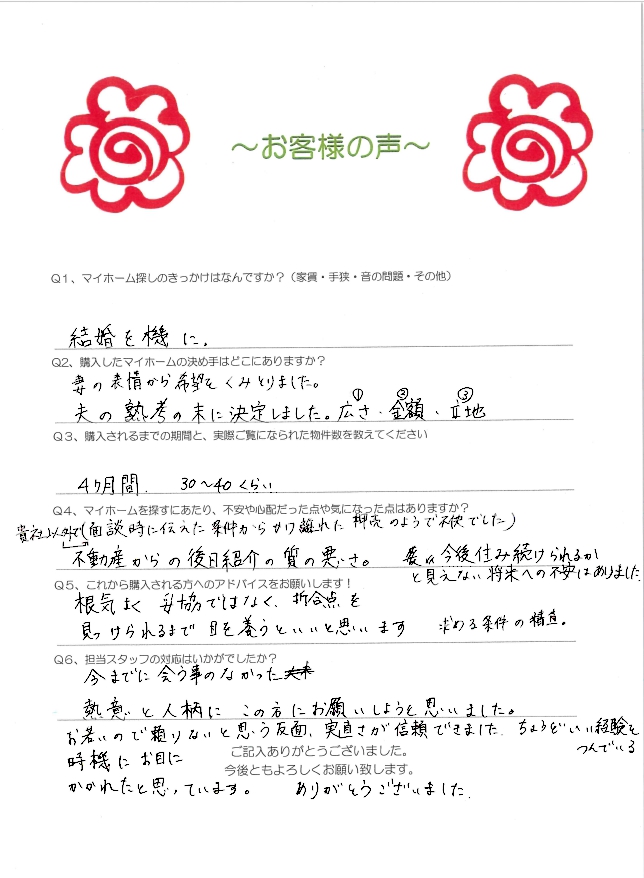 ～お客様の声～
Q1、マイホーム探しのきっかけはなんですか？（家賃・手狭・音の問題・その他）
結婚を機に.
Q2、購入したマイホームの決め手はどこにありますか？
妻の表情から希望をくみとりました。
夫の熟考の末に決定しました。①広さ・②金額・③立地
Q3、購入されるまでの期間と、実際ご覧になられた物件数を教えてください
4ヶ月間. 30～40くらい
Q4、マイホームを探すにあたり、不安や心配だった点や気になった点はありますか？
貴社以外で(面談時に伝えた条件からかけ離れた 押売のようで不快でした)
不動産からの後日紹介の質の悪さ。 今後住み続けられるか
と見えない将来への不安はありました
Q5、これから購入される方へのアドバイスをお願いします！
根気よく 妥協ではなく、折合点を
見つけられるまで 目を養うといいと思います 求める条件の精査。
Q6、担当スタッフの対応はいかがでしたか？
今までに会う事のなかった
熱意と人柄に この方にお願いしようと思いました。
お若いので頼りないと思う反面、実直さが信頼できました. ちょうどいい経験を
つんでいる
時機にお目に
ご記入ありがとうございました。
今後ともよろしくお願い致します。
かかれたと思っています。 ありがとうございました.